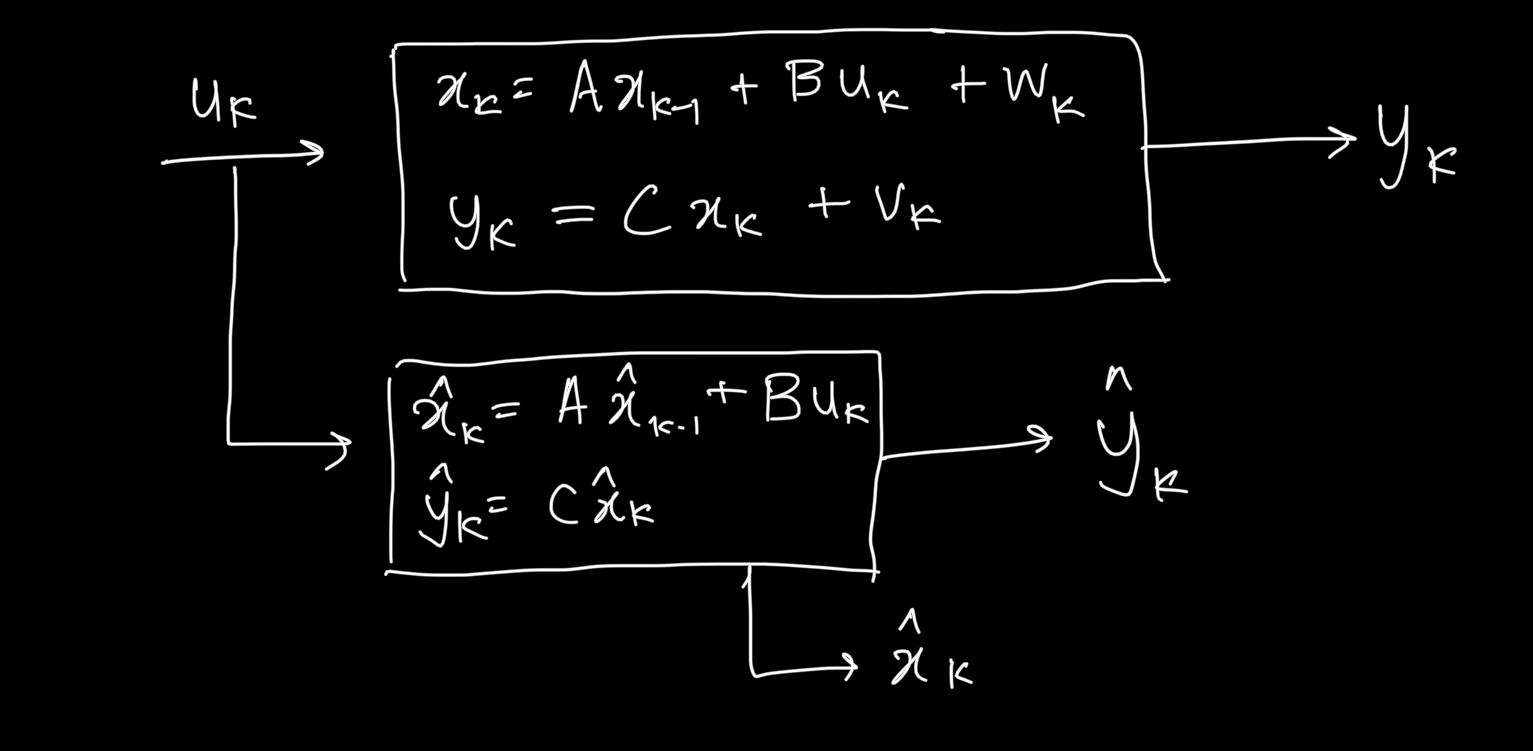 u_k
x_k = A x_{k-1} + B u_k + w_k
y_k = C x_k + v_k
y_k
x̂_k = A x̂_{k-1} + B u_k
ŷ_k = C x̂_k
ŷ_k
x̂_k